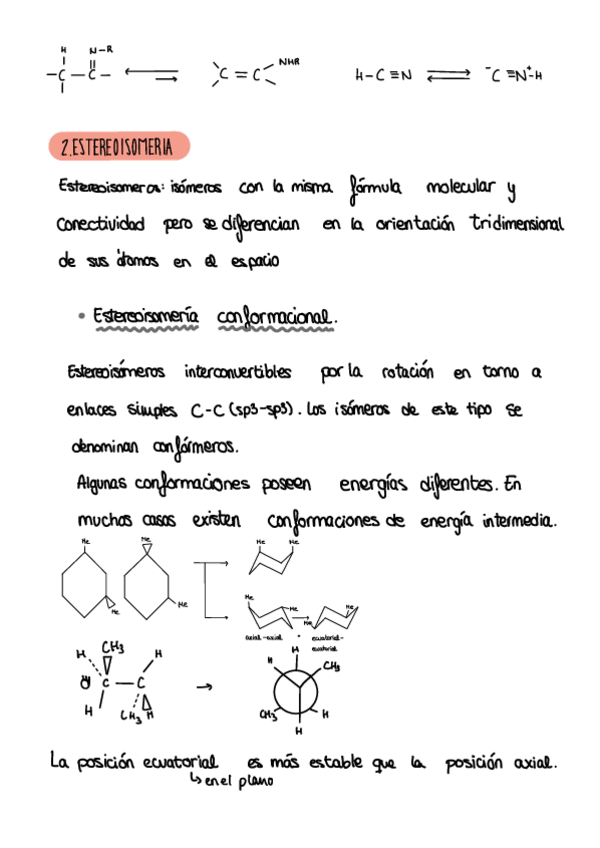 H N-R
-C-C- C=C NHR H-C≡N ⁻C≡N⁺-H
2.ESTEREOISOMERIA
Estereoisomeros: isómeros con la misma fórmula molecular y
conectividad pero se diferencian en la orientación tridimensional
de sus átomos en el espacio
• Estereoisomería conformacional.
Estereoisómeros interconvertibles por la rotación en torno a
enlaces simples C-C (sp3-sp3). Los isómeros de este tipo se
denominan confórmeros.
Algunas conformaciones poseen energías diferentes. En
muchos casos existen conformaciones de energía intermedia.
Me Me Me Me
Me Me
Me Me Me Me
axial-axial • ecuatorial-
ecuatorial
H CH3 H H H CH3
C-C
H CH3 H CH3 H
H
La posición ecuatorial es más estable que la posición axial.
↳ en el plano